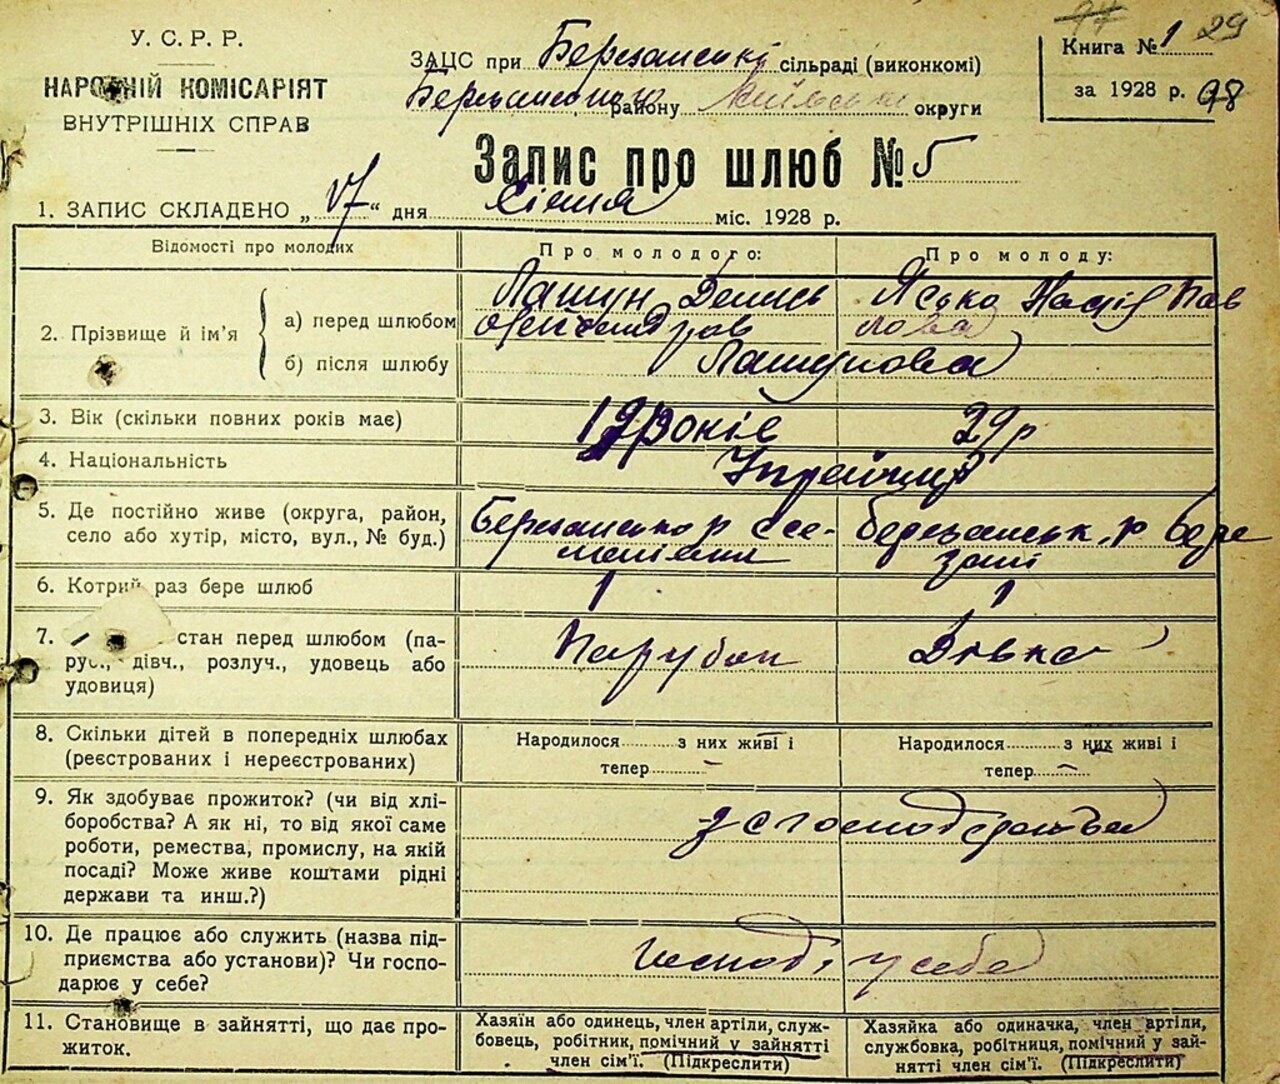 У. С. Р. Р.
НАРОДНІЙ КОМІСАРІЯТ
ВНУТРІШНІХ СПРАВ
ЗАЦС при Березанські сільраді (виконкомі)
Березанського району Київської округи
Книга № 1 29
за 1928 р. 98
Запис про шлюб № 5
1. ЗАПИС СКЛАДЕНО „17“ дня Січня міс. 1928 р.
Відомості про молодих
Про молодого:
Про молоду:
2. Прізвище й ім'я
а) перед шлюбом
Лашун Денис
Ясько Надія Пав
лова
б) після шлюбу
Лашунова
3. Вік (скільки повних років має)
років
29 р
4. Національність
5. Де постійно живе (округа, район,
село або хутір, місто, вул., № буд.)
Березанського р с Се-
менівки
Березанськ. р Бере
зані
6. Котрий раз бере шлюб
1
1
7. стан перед шлюбом (па-
руб., дівч., розлуч., удовець або
удовиця)
Парубок
Дівка
8. Скільки дітей в попередніх шлюбах
(реєстрованих і нереєстрованих)
Народилося з них живі і
тепер –
Народилося з них живі і
тепер –
9. Як здобуває прожиток? (чи від хлі-
боробства? А як ні, то від якої саме
роботи, ремества, промислу, на якій
посаді? Може живе коштами рідні
держави та инш.?)
з с господарства
10. Де працює або служить (назва під-
приємства або установи)? Чи госпо-
дарює у себе?
Господ. у себе
11. Становище в зайнятті, що дає про-
житок.
Хазяїн або одинець, член артілі, служ-
бовець, робітник, помічний у зайнятті
член сім'ї. (Підкреслити)
Хазяйка або одиначка, член артілі,
службовка, робітниця, помічний у зай-
нятті член сім'ї. (Підкреслити)